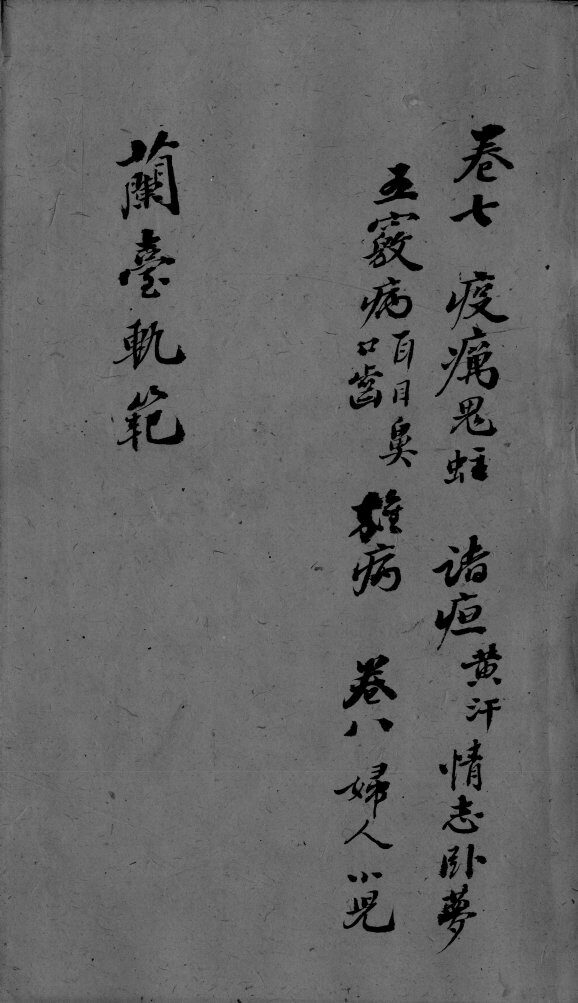 卷七　疫癘鬼蛀　諸疸黄汗情志卧夢
五竅病耳目鼻口齒　雜病　卷八　婦人小児
蘭臺軌範